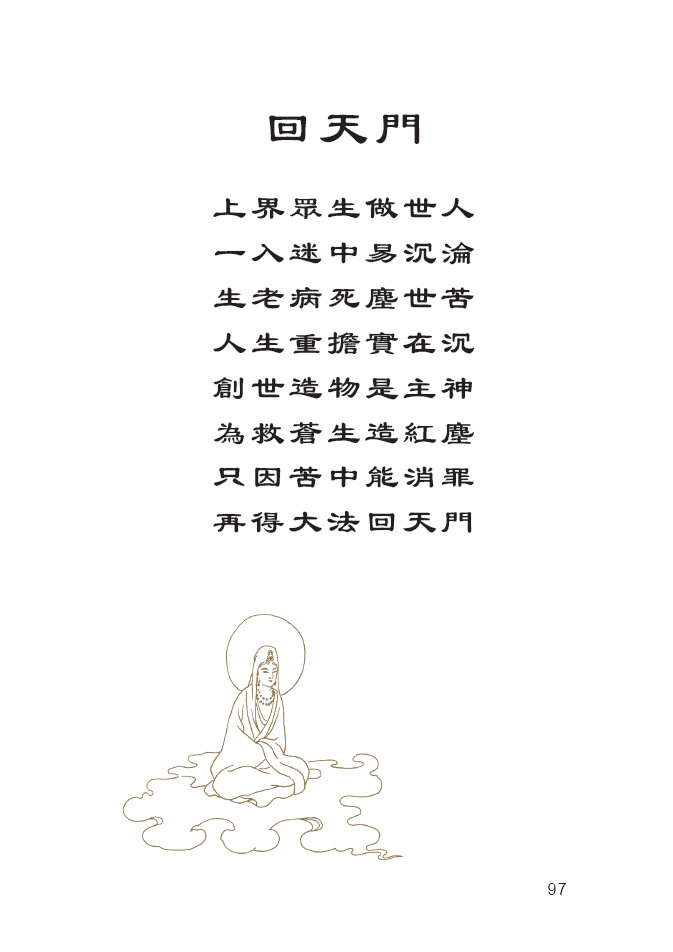 回天門
上界眾生做世人
一入迷中易沉淪
生老病死塵世苦
人生重擔實在沉
創世造物是主神
為救蒼生造紅塵
只因苦中能消罪
再得大法回天門
97